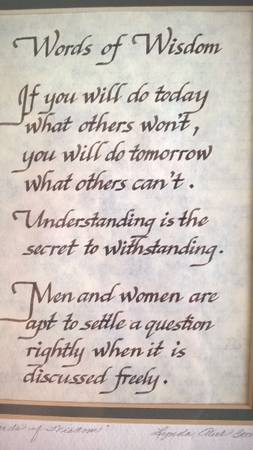 Words of Wisdom
If you will do today
what others won't,
you will do tomorrow
what others can't.
Understanding is the
secret to withstanding.
Men and women are
apt to settle a question
rightly when it is
discussed freely.
of Wisdom" Lynda